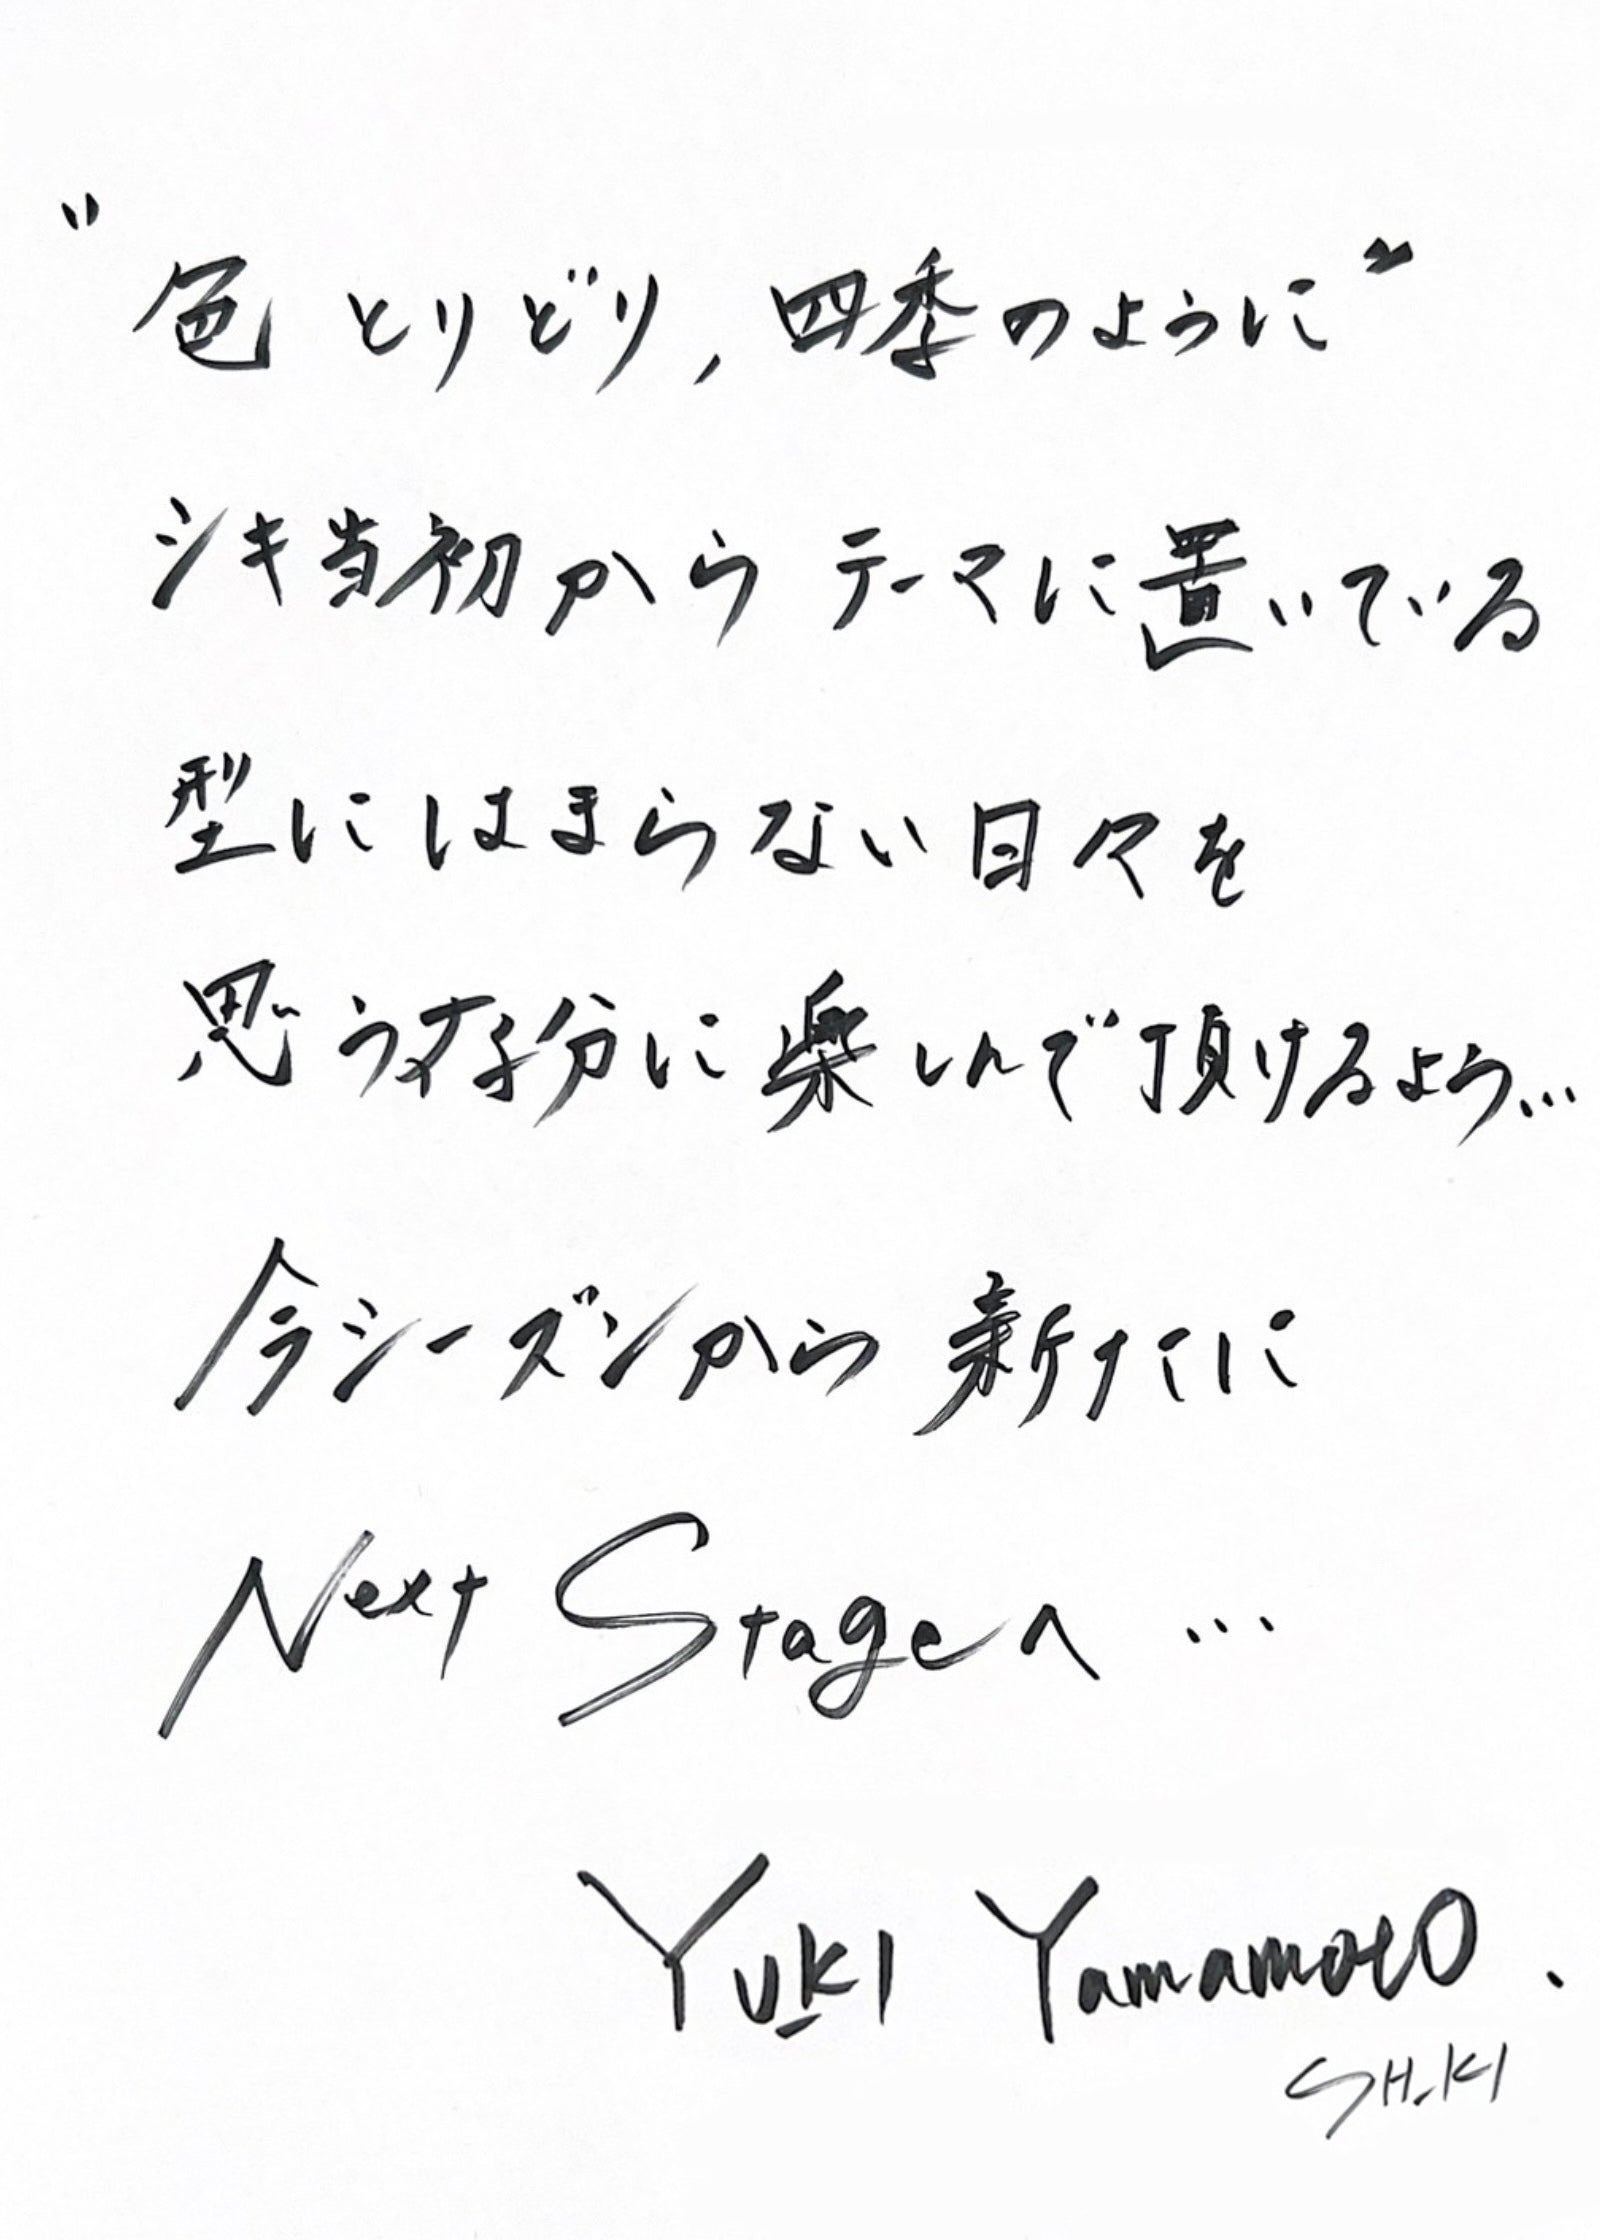 "色とりどり,四季のように"
シキ当初からテーマに置いている
型にはまらない日々を
思う存分に楽しんで頂けるよう...
今シーズンから新たに
Next Stageへ...
YUKI Yamamoto.
SHIKI